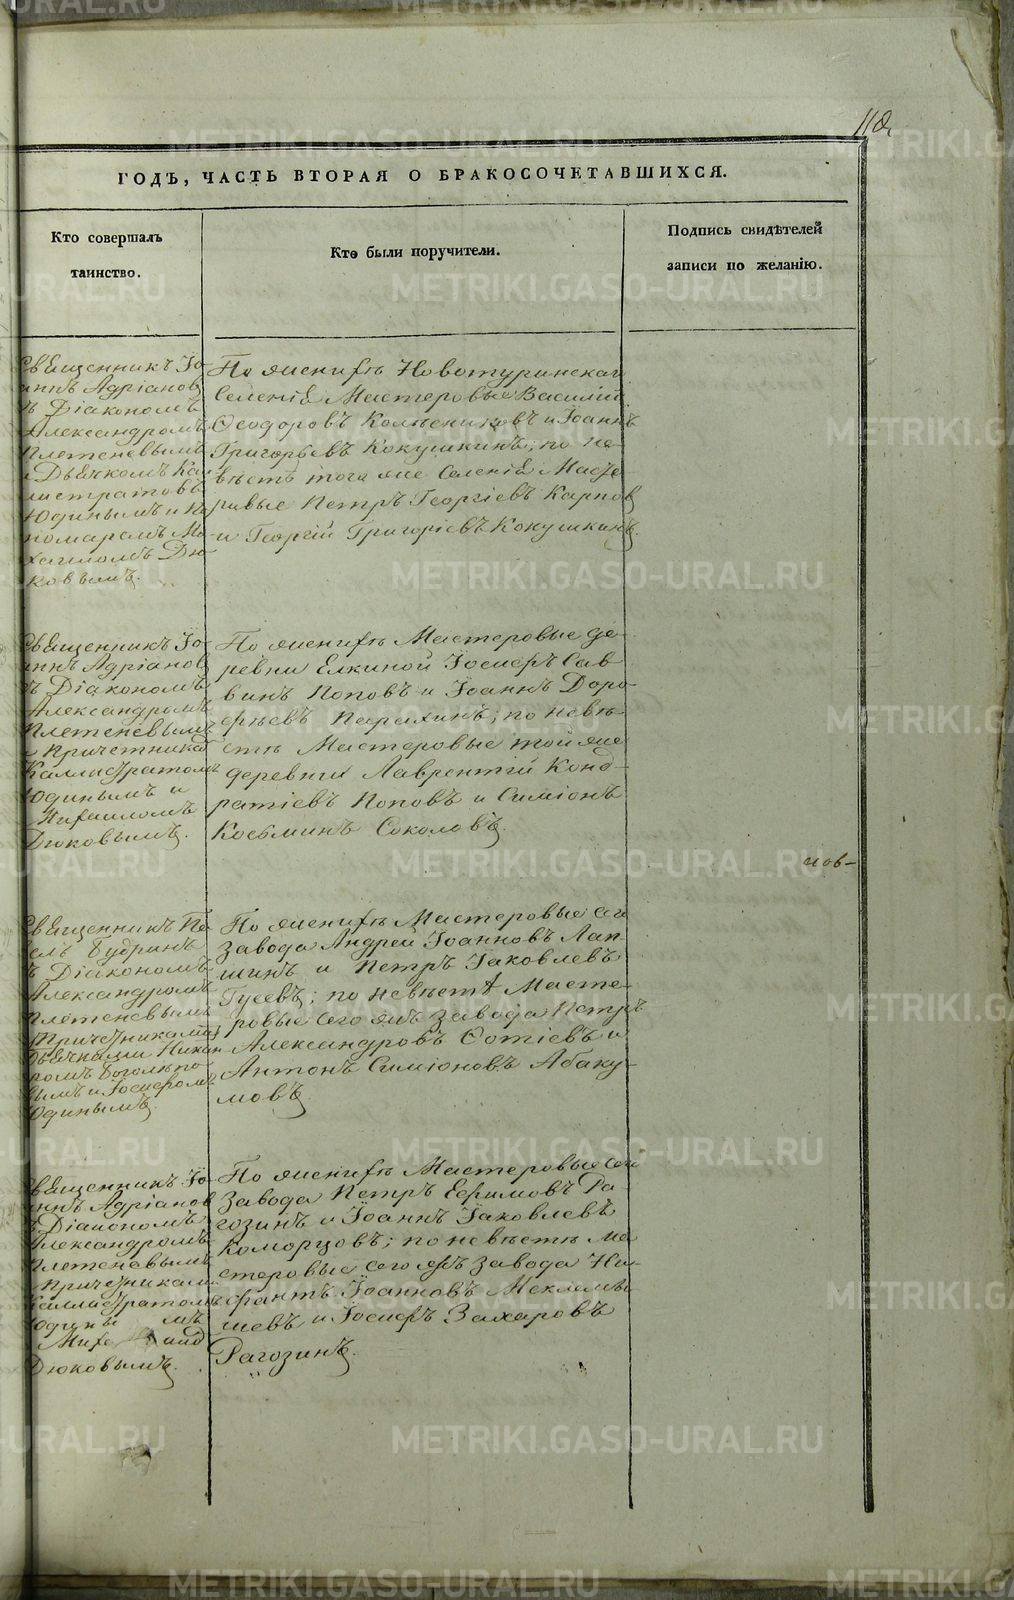 ГОДЪ, ЧАСТЬ ВТОРАЯ О БРАКОСОЧЕТАВШИХСЯ.
Кто совершалъ
таинство.
Кто были поручители.
Подпись свидѣтелей
записи по желанію.
Священникъ Іо-
аннъ Адріановъ
съ Діакономъ
Александромъ
Плетеневымъ
и Дьячкомъ Ка-
листратомъ
Юдинымъ и По-
номаремъ Ми-
хаиломъ Дю-
ковымъ.
По женихѣ Новотуринскаго
Селенія Мастеровые Василій
Ѳеодоровъ Колѣсниковъ и Іоаннъ
Григорьевъ Кокушкинъ; по не-
вѣстѣ того же Селенія Масте-
ровые Петръ Георгіевъ Карпов
и Георгій Григоріевъ Кокушкинъ.
Священникъ Іо-
аннъ Адріанов
съ Діакономъ
Александромъ
Плетеневымъ
и Причетника
Каллистратомъ
Юдинымъ и
Михаиломъ
Дюковымъ.
По женихѣ Мастеровые де-
ревни Елкиной Іосифъ Сав
винъ Поповъ и Іоаннъ Доро-
фѣевъ Парахинъ; по невѣ-
стѣ Мастеровые той же
деревни Лаврентій Конд-
ратіевъ Поповъ и Симіонъ
Косьминъ Соколовъ.
Священникъ Па
велъ Будринъ
съ Діакономъ
Александромъ
Плетеневымъ
Причетниками
Дьячками Никан
ромъ Боголюбо
вымъ и Іосифомъ
Юдинымъ.
По женихѣ Мастеровые сего
завода Андрей Іоанновъ Лап-
шинъ и Петръ Іаковлевъ
Гусевъ; по невѣстѣ Масте-
ровые сего жъ завода Петръ
Александровъ Фотіевъ и
Антонъ Симіоновъ Абаку-
мовъ.
Священникъ Іо-
аннъ Адріанов
съ Діакономъ
Александромъ
Плетеневымъ
Причетниками
Каллистратомъ
Юдинымъ
Дюковымъ.
По женихѣ Мастеровые сего
завода Петръ Ефимовъ Ра-
гозинъ и Іоаннъ Іаковлевъ
Коморцовъ; по невѣстѣ Ма
стеровые сего жъ завода Ни-
фантъ Іоанновъ Меклемы
шевъ и Іосифъ Захаровъ
Рагозинъ.
нов-
METRIKI.GASO-URAL.RU